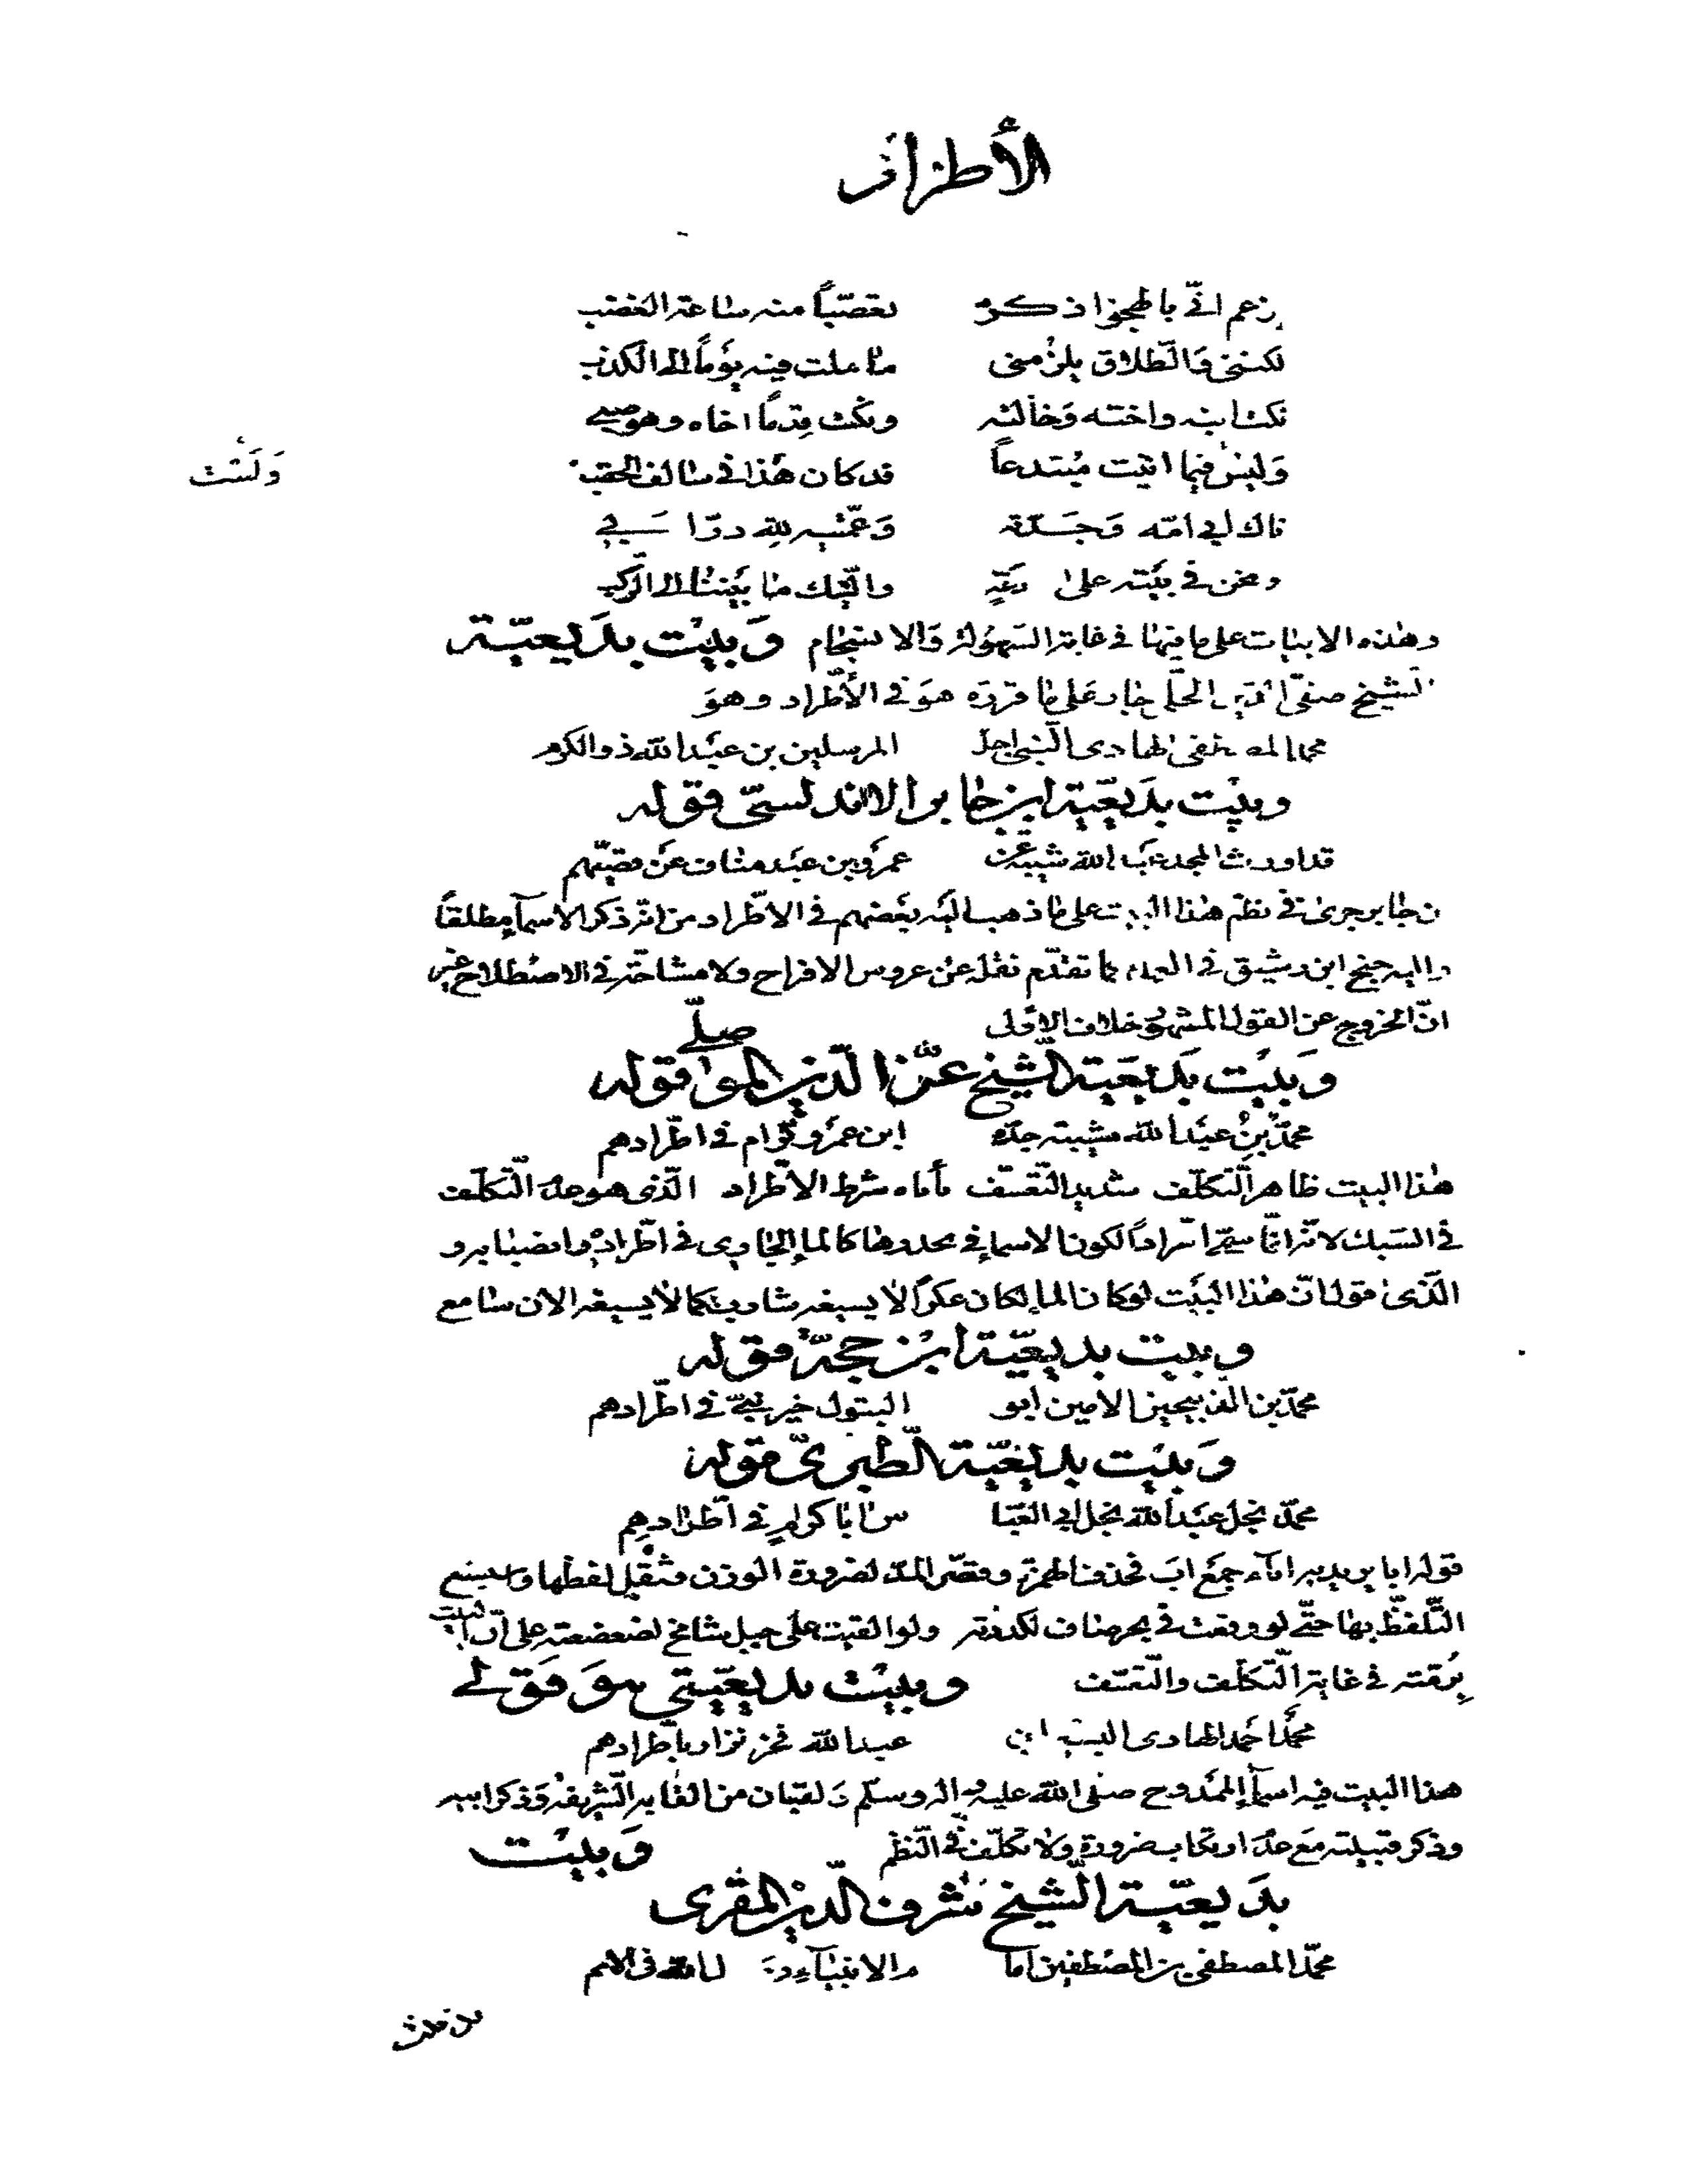 الأطراد
زعم انّى بالهجو اذكره    تعصّباً منه ساعة الغضب
لكننى والطّلاق يلزمنى    ما ملت فيه يوماً الى الكذب
نكت ابنه واخته وخالته    ونكت قدماً اخاه وهو صبى
وليس فيما اتيت مبتدعاً    قد كان هذا فى سالف الحقب
وَلَسْت
ناك ابى امّه وجدّته    وعمّته لله درّا بى
ونحن فى بيته على دعة    والنّيك ما بيننا الى الركب
وهذه الابيات على ما فيها فى غاية السّهولة والانسجام وبيت بديعيّة
الشيخ صفىّ الدين الحلّى جار على ما قرره هو فى الأطّراد وهو
محمد المصطفى الهادى النّبى اجل    المرسلين بن عبد الله ذو الكرم
وبيت بديعيّة ابن جابر الاندلسىّ قوله
قد اورث المجد عبد الله شيبة عن    عمرو بن عبد مناف عن قصيّهم
بن جابر جرى فى نظم هذا البيت على ما ذهب اليه بعضهم فى الاطّراد من انّه ذكر الاسماء مطلقاً
واليه جنح ابن رشيق فى العمدة كما تقدّم نقله عن عروس الافراح ولا مشاحّة فى الاصطلاح غير
انّ الخروج عن القول المشهور خلاف الاولى
وبيت بديعيّة الشيخ عزّ الدّين الموصلّى قوله
محمّد بن عبد الله شيبة جدّه    ابن عمرو كرام فى اطّرادهم
هذا البيت ظاهر التّكلّف شديد التّعسّف يأباه شرط الأطّراد الّذى هو عدم التّكلّف
فى السّبك لانّه انّما سمّى اطّراداً لكون الاسماء فى تحدرها كالماء الجارى فى اطّراده وانضبابه و
الّذى اقول انّ هذا البيت لو كان الماء لكان عكراً لا يسيغه شارب كما لا يسيغه الان سامع
وبيت بديعيّة ابن حجّة قوله
محمّد بن الذّبيحين الامين ابو    البتول خير نبىّ فى اطّرادهم
وبيت بديعيّة الطبرىّ قوله
محمّد نجل عبد الله نجل ابى العبّا    س ابا كرام فى اطّرادهم
قوله ابا يريد به اباء جمع اب فحذف الهمزة وقصر المدّ لضرورة الوزن وثقيل لفظها
التّلفظ بها حتّى لو وقعت فى بحر صاف لكدرته ولو القيت على جبل شامخ لضعضعته على انّ البيت
برمّته فى غاية التّكلّف والتّعسّف    وبيت بديعيّتي هو قولى
محمّد احمد الهادى البشير ابن    عبد الله فخر نزار باطّرادهم
هذا البيت فيه اسماء الممدوح صلى الله عليه واله وسلم ولقبان من القابه الشّريفة وذكر ابيه
وذكر قبيلته مع عدم ارتكاب ضرورة ولا تكلّف فى النّظم    وبيت
بديعيّة الشيخ شرف الدّين المقرى
محمّد المصطفى بن المصطفين اما    م الانبياء    الله فى الامم